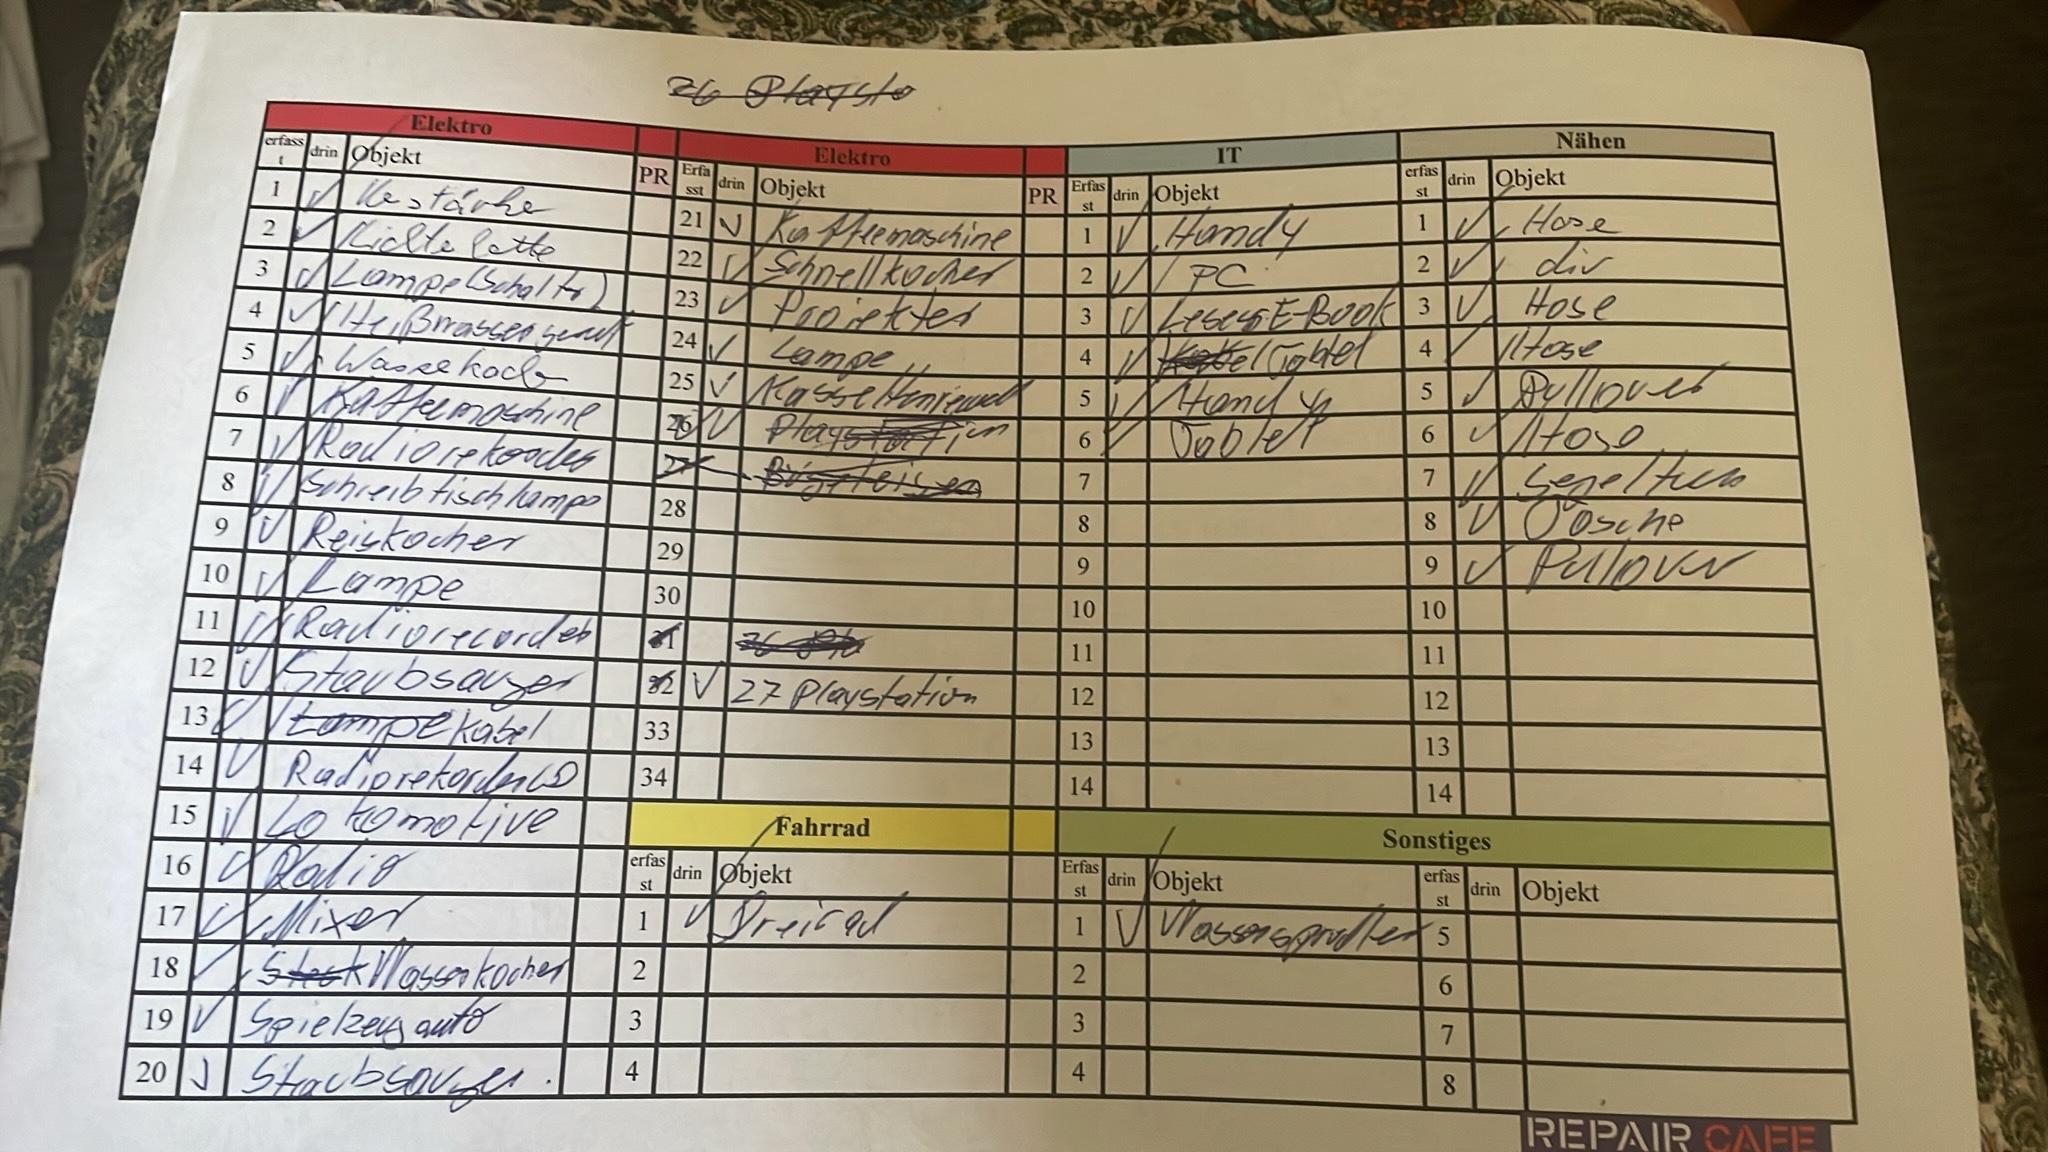 26 Playsto
Elektro
erfasst drin Objekt PR
1 Verstärker
2 Lichterkette
3 Lampe (Schalter)
4 Heißwassergerät
5 Wasserkoch
6 Kaffeemaschine
7 Radiorekorder
8 Schreibtischlampe
9 Reiskocher
10 Lampe
11 Radiorecorder
12 Staubsauger
13 Lampe Kabel
14 Radiorekorder CD
15 Lokomotive
16 Radio
17 Mixer
18 Steck Wasserkocher
19 Spielzeugauto
20 Staubsauger.
Elektro
Erfasst drin Objekt PR
21 Kaffeemaschine
22 Schnellkocher
23 Projektor
24 Lampe
25
26
27 Bügeleisen
28
29
30
31 26
32 27 Playstation
33
34
Fahrrad
erfasst drin Objekt
1 Dreirad
2
3
4
IT
Erfasst drin Objekt
1 Handy
2 PC
3 E-Book
4 Tablet
5 Handy
6 Tablet
7
8
9
10
11
12
13
14
Nähen
erfasst drin Objekt
1 Hose
2 div
3 Hose
4 Hose
5 Pullover
6 Hose
7 Segeltuch
8 Tasche
9 Pullover
10
11
12
13
14
Sonstiges
Erfasst drin Objekt
1 Wassersprudler
2
3
4
erfasst drin Objekt
5
6
7
8
REPAIR CAFE